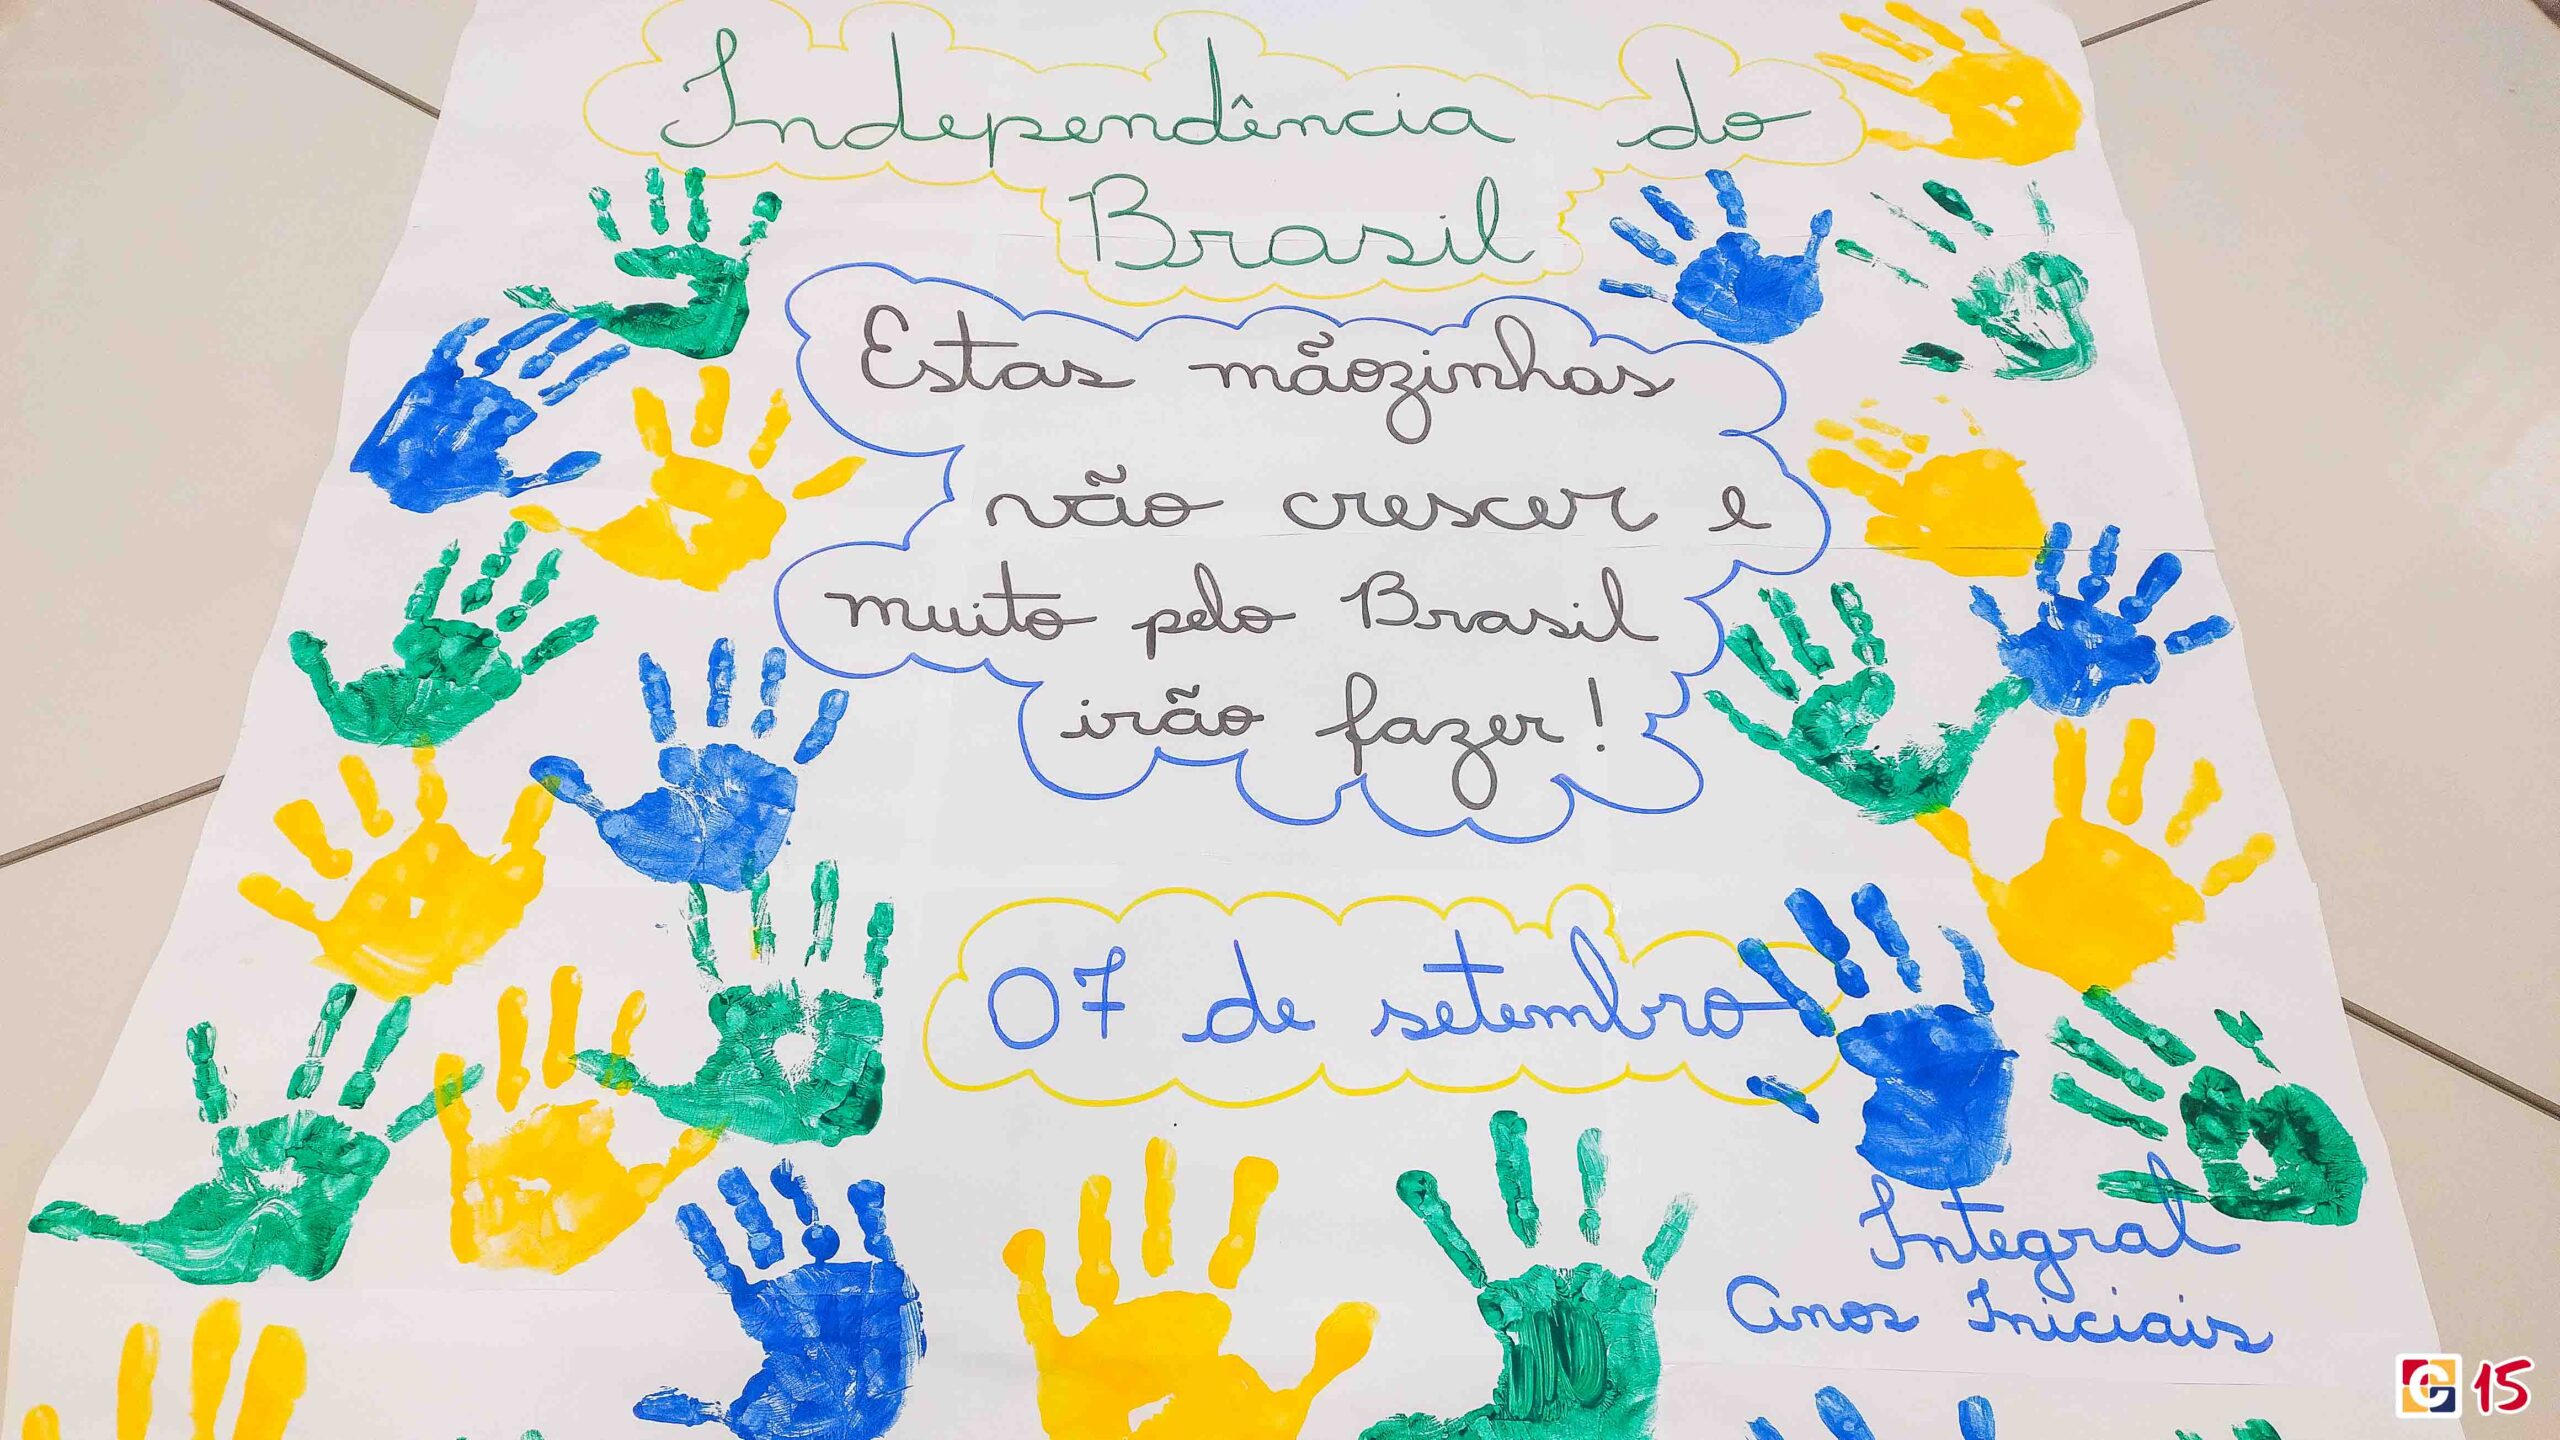 Independência do
Brasil
Estas mãozinhas
vão crescer e
muito pelo Brasil
irão fazer!
07 de setembro
Integral
Anos Iniciais
15